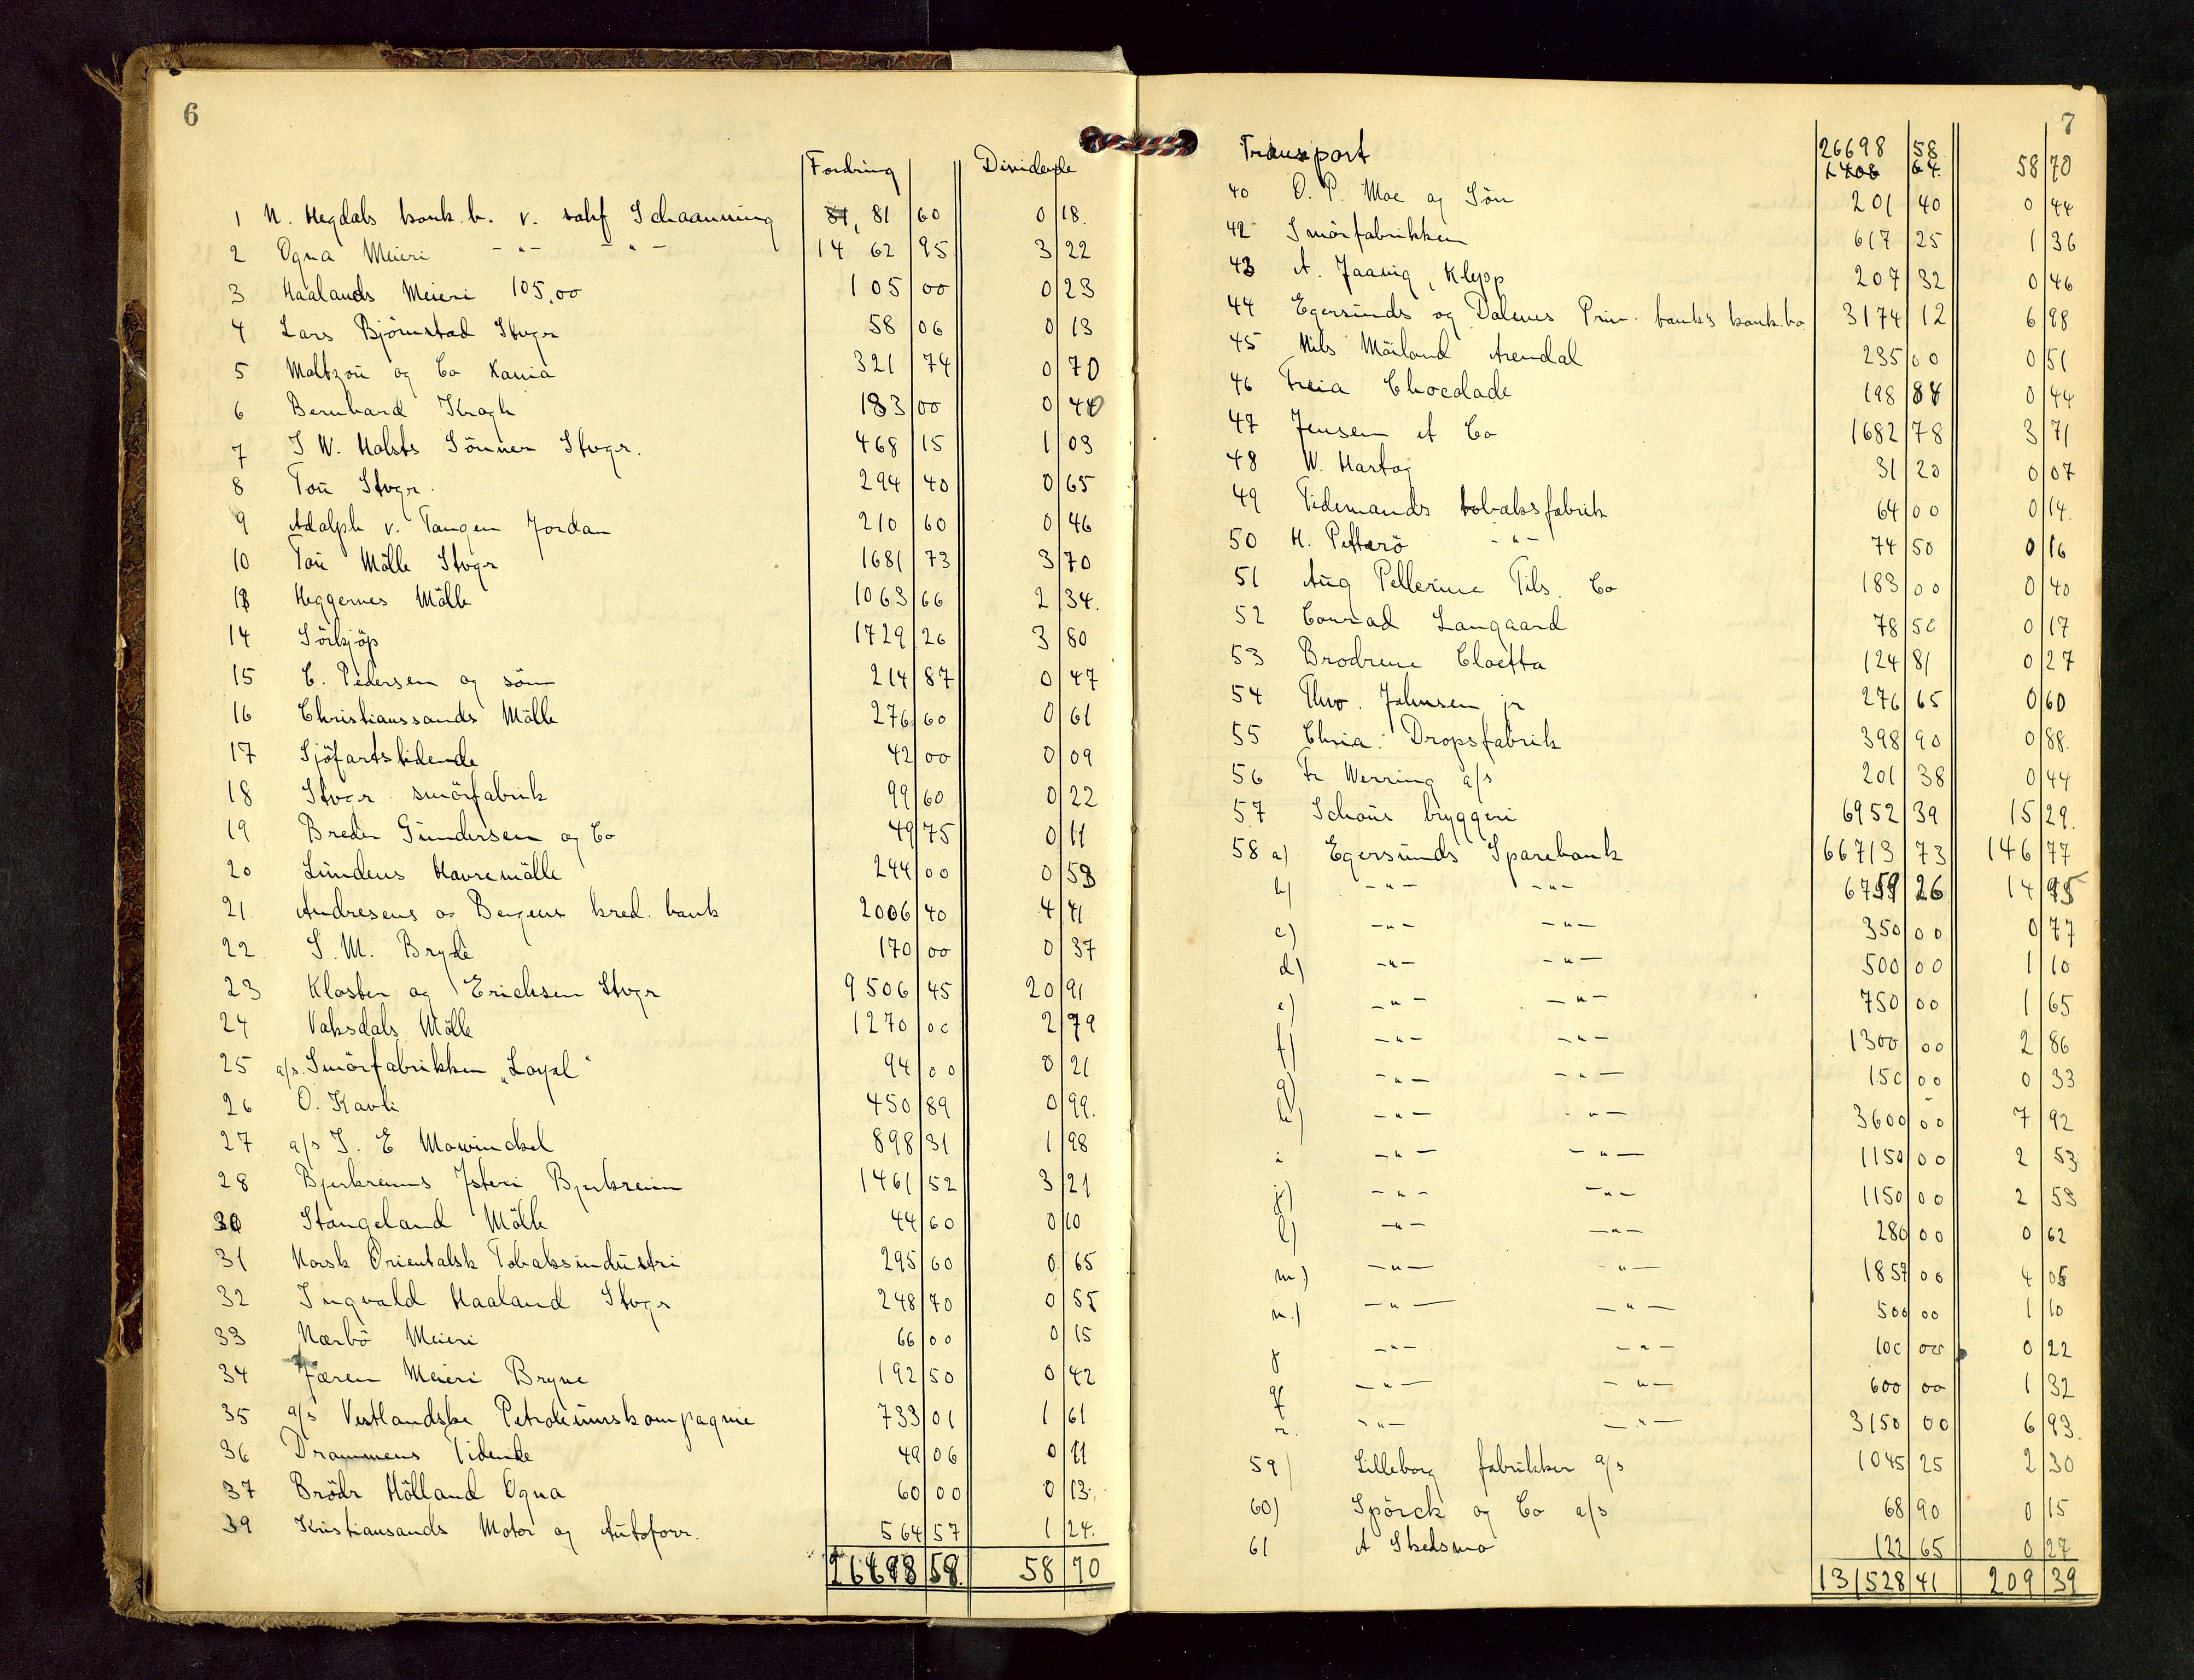 6
Fordring Dividende
1 N. Hegdals konk.b. v. sahf Schaanning 81, 81 60 0 18.
2 Ogna Meieri -"- -"- 14 62 95 3 22
3 Haalands Meieri 105,00 105 00 0 23
4 Lars Björnstad Stvgr 58 06 0 13
5 Maltzou og Co Kania 321 74 0 70
6 Bernhard Krogh 183 00 0 40
7 I W. Holsts Sönner Stvgr. 468 15 1 03
8 Tou Stvgr. 294 40 0 65
9 Adolph v. Tangen Jordan 210 60 0 46
10 Tou Mölle Stvgr 1681 73 3 70
13 Heggernes Mölle 1063 66 2 34.
14 Sörkjöp 1729 26 3 80
15 C. Pedersen og sön 214 87 0 47
16 Christianssands Mölle 276 60 0 61
17 Sjöfartstidende 42 00 0 09
18 Stvgr smörfabrik 99 60 0 22
19 Breder Gundersen og Co 49 75 0 11
20 Lundens Havremölle 244 00 0 53
21. Andresens og Bergens kred. bank 2006 40 4 41
22. I. M. Bryde 170 00 0 37
23 Kloster og Erichsen Stvgr 9506 45 20 91
24 Vaksdals Mölle 1270 00 2 79
25 a/s. Smörfabrikken „Loyal" 94 00 0 21
26 O. Kavli 450 89 0 99.
27 a/s I. E Mowinckel 898 31 1 98
28 Bjerkreims Ysteri Bjerkreim 1461 52 3 21
30 Stangeland Mölle 44 60 0 10
31 Norsk Orientalsk Tobaksindustri 295 60 0 65
32 Ingvald Haaland Stvgr 248 70 0 55
33 Nærbö Meieri 66 00 0 15
34 Jæren Meieri Bryne 192 50 0 42
35 a/s Vestlandske Petroleumskompagnie 733 01 1 61
36 Drammens Tidende 49 06 0 11
37 Brödr Hölland Ogna 60 00 0 13.
39 Kristiansands Motor og Autoforr. 564 57 1 24.
26698 58. 58 70
7
Transport 26698 58. 58 70
40 O. P. Moe og Sön 201 40 0 44
42 Smörfabrikken 617 25 1 36
43 A. Jaavig, Klepp 207 32 0 46
44 Egersunds og Dalenes Priv. banks konk.bo 3174 12 6 98
45 Nils Möiland Arendal 235 00 0 51
46 Freia Chocolade 198 84 0 44
47 Jensen et Co 1682 78 3 71
48 W. Hartog 31 20 0 07
49 Tidemands tobaksfabrik 64 00 0 14.
50 H. Petterö -"- 74 50 0 16
51 Aug Pellerine Fils. Co 183 00 0 40
52 Conrad Langaard 78 50 0 17
53 Brodrene Cloetta 124 81 0 27
54 Thvo. Johnsen jr 276 65 0 60
55 Chria. Dropsfabrik 398 90 0 88.
56 Fr Werring a/s 201 38 0 44
57 Schous bryggeri 6952 39 15 29.
58 a) Egersunds Sparebank 66713 73 146 77
b) -"- -"- 6759 26 14 95
c) -"- -"- 350 00 0 77
d) -"- -"- 500 00 1 10
e) -"- -"- 750 00 1 65
f) -"- -"- 1300 00 2 86
g) -"- -"- 150 00 0 33
h) -"- -"- 3600 00 7 92
i -"- -"- 1150 00 2 53
j) -"- -"- 1150 00 2 53
l) -"- -"- 280 00 0 62
m) -"- -"- 1857 00 4 05
n.) -"- -"- 500 00 1 10
p -"- -"- 100 00 0 22
q -"- -"- 600 00 1 32
r. -"- -"- 3150 00 6 93.
59) Lilleborg fabrikker a/s 1045 25 2 30
60) Spörck og Co a/s 68 90 0 15
61 A Skedsmo 122 65 0 27
131528 41 209 39